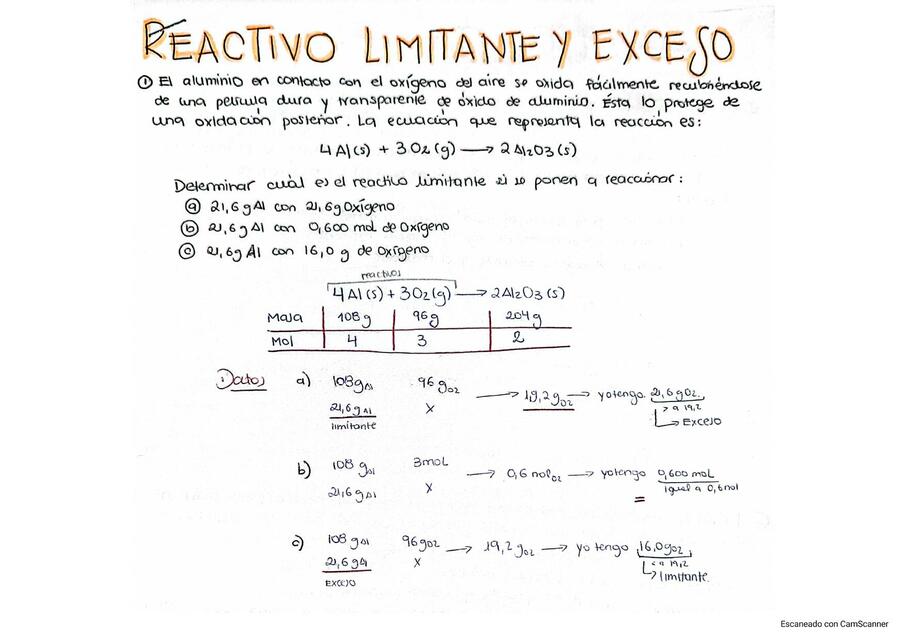 REACTIVO LIMITANTE Y EXCESO
① El aluminio en contacto con el oxígeno del aire se oxida fácilmente recubriéndose
de una película dura y transparente de óxido de aluminio. Ésta lo protege de
una oxidación posterior. La ecuación que representa la reacción es:
4Al(s) + 3O2(g) → 2Al2O3(s)
Determinar cuál es el reactivo limitante si se ponen a reaccionar:
ⓐ 21,6gAl con 21,6gOxígeno
ⓑ 21,6gAl con 0,600 mol de Oxígeno
ⓒ 21,6gAl con 16,0 g de Oxígeno
reactivos
4Al(s) + 3O2(g) → 2Al2O3(s)
Masa 108g 96g 204g
Mol 4 3 2
Datos a) 108gAl 96gO2 → 19,2gO2 → yo tengo 21,6gO2
21,6gAl X > a 19,2
limitante → EXCESO
b) 108gAl 3mol → 0,6molO2 → yo tengo 0,600mol
21,6gAl X = igual a 0,6mol
c) 108gAl 96gO2 → 19,2gO2 → yo tengo 16,0gO2
21,6gAl X < a 19,2
EXCESO → limitante.
Escaneado con CamScanner